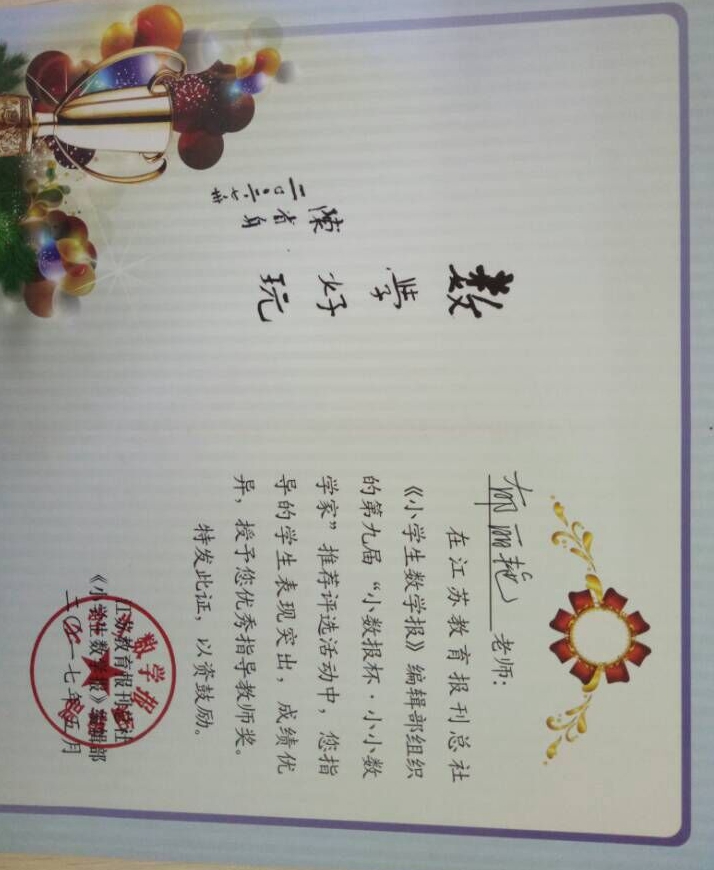 数学好玩
陈省身
二〇〇二.七卅
郁丽艳 老师:
在江苏教育报刊总社
《小学生数学报》编辑部组织
的第九届“小数报杯·小小数
学家”推荐评选活动中,您指
导的学生表现突出,成绩优
异,授予您优秀指导教师奖。
特发此证,以资鼓励。
江苏教育报刊总社
《小学生数学报》编辑部
二〇一七年五月
数学报